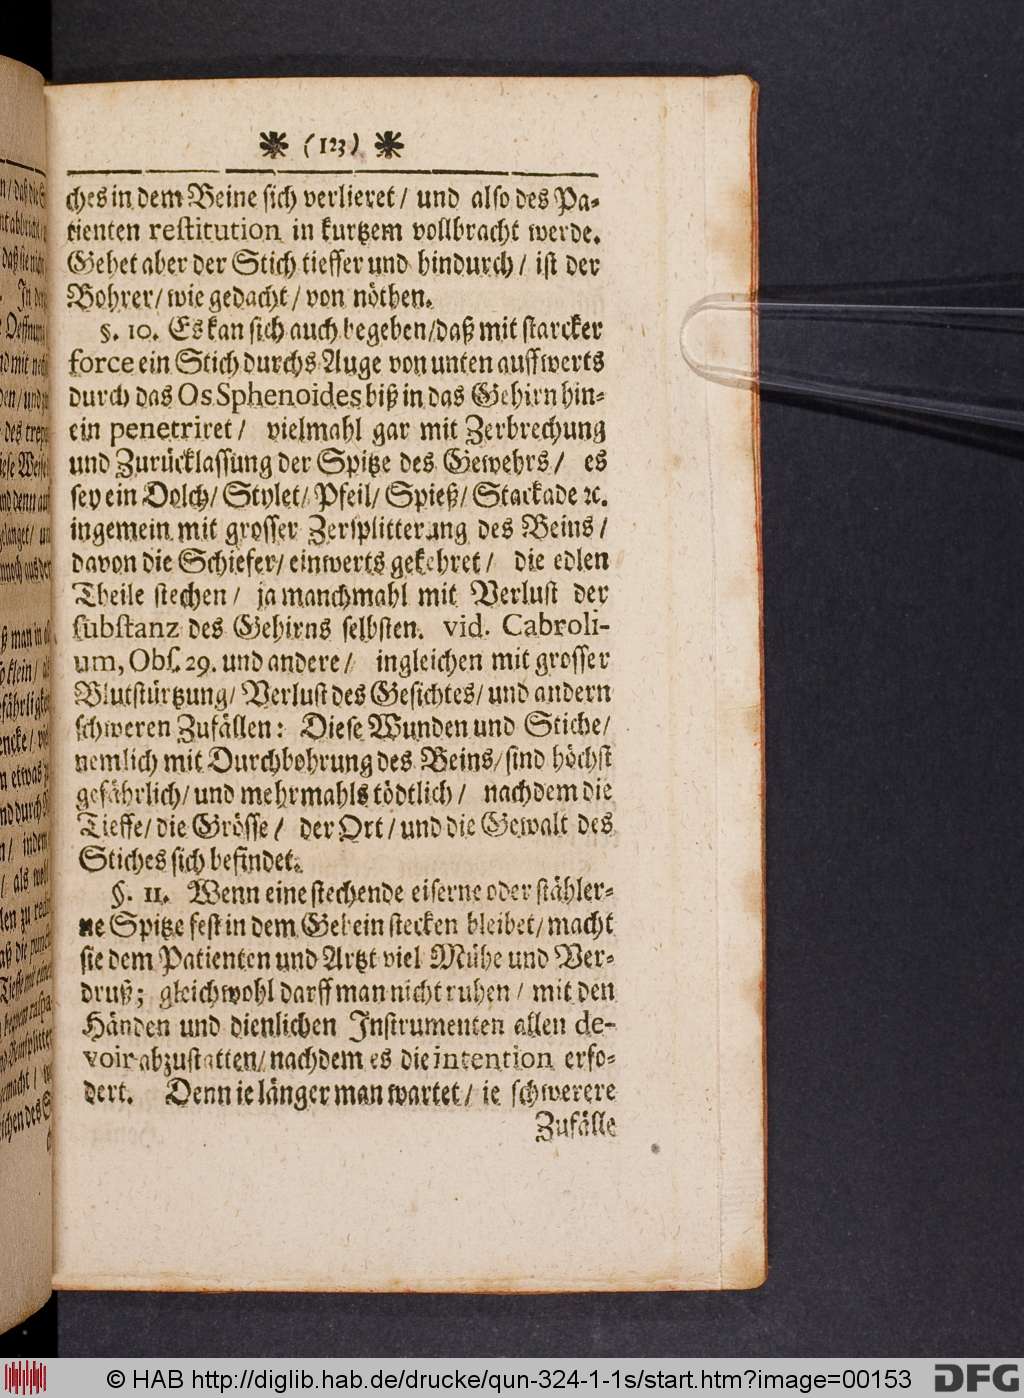 (123)
ches in dem Beine sich verlieret/ und also des Pa-
tienten restitution in kurtzem vollbracht werde.
Gehet aber der Stich tieffer und hindurch/ ist der
Bohrer/ wie gedacht/ von nöthen.
§. 10. Es kan sich auch begeben/ daß mit starcker
force ein Stich durchs Auge von unten auffwerts
durch das Os Sphenoides biß in das Gehirn hin-
ein penetriret/ vielmahl gar mit Zerbrechung
und Zurücklassung der Spitze des Gewehrs/ es
sey ein Dolch/ Stylet/ Pfeil/ Spieß/ Stackade ꝛc.
ingemein mit grosser Zersplitterung des Beins/
davon die Schiefer/ einwerts gekehret/ die edlen
Theile stechen/ ja manchmahl mit Verlust der
substanz des Gehirns selbsten. vid. Cabroli-
um, Obs. 29. und andere/ ingleichen mit grosser
Blutstürtzung/ Verlust des Gesichtes/ und andern
schweren Zufällen: Diese Wunden und Stiche/
nemlich mit Durchbohrung des Beins/ sind höchst
gefährlich/ und mehrmahls tödtlich/ nachdem die
Tieffe/ die Grösse/ der Ort/ und die Gewalt des
Stiches sich befindet.
§. 11. Wenn eine stechende eiserne oder stähler-
ne Spitze fest in dem Gebein stecken bleibet/ macht
sie dem Patienten und Artzt viel Mühe und Ver-
druß; gleichwohl darff man nicht ruhen/ mit den
Händen und dienlichen Instrumenten allen de-
voir abzustatten/ nachdem es die intention erfo-
dert. Denn ie länger man wartet/ ie schwerere
Zufälle
© HAB http://diglib.hab.de/drucke/qun-324-1-1s/start.htm?image=00153
DFG